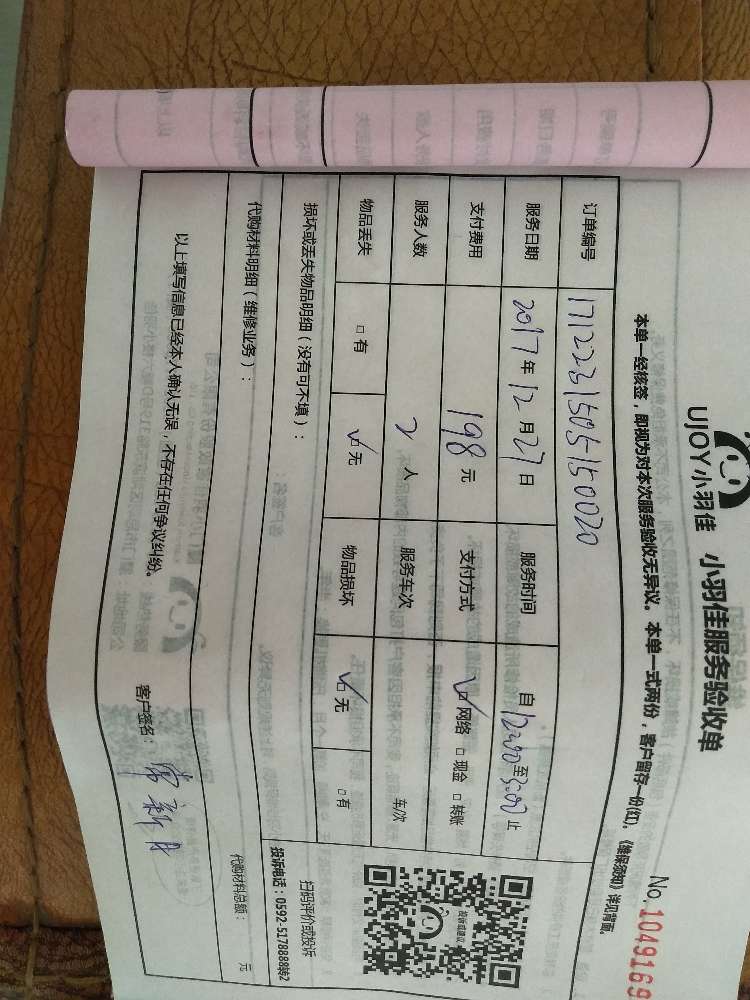 UJOY小羽佳 小羽佳服务验收单
No.1049169
本单一经核签，即视为对本次服务验收无异议。本单一式两份，客户留存一份(红)。《维保须知》详见背面。
订单编号 171223150515 0020
服务日期 2017年12月27日 服务时间 自12:00至3:00止
支付费用 198元 支付方式 ☑网络 □现金 □转账
服务人数 2人 服务车次 车/次
物品丢失 □有 ☑无 物品损坏 ☑无 □有
扫码评价或投诉
投诉电话：0592-5178888转2
损坏或丢失物品明细（没有可不填）：
代购材料明细（维修业务）： 代购材料总额： 元
以上填写信息已经本人确认无误，不存在任何争议纠纷。 客户签名：